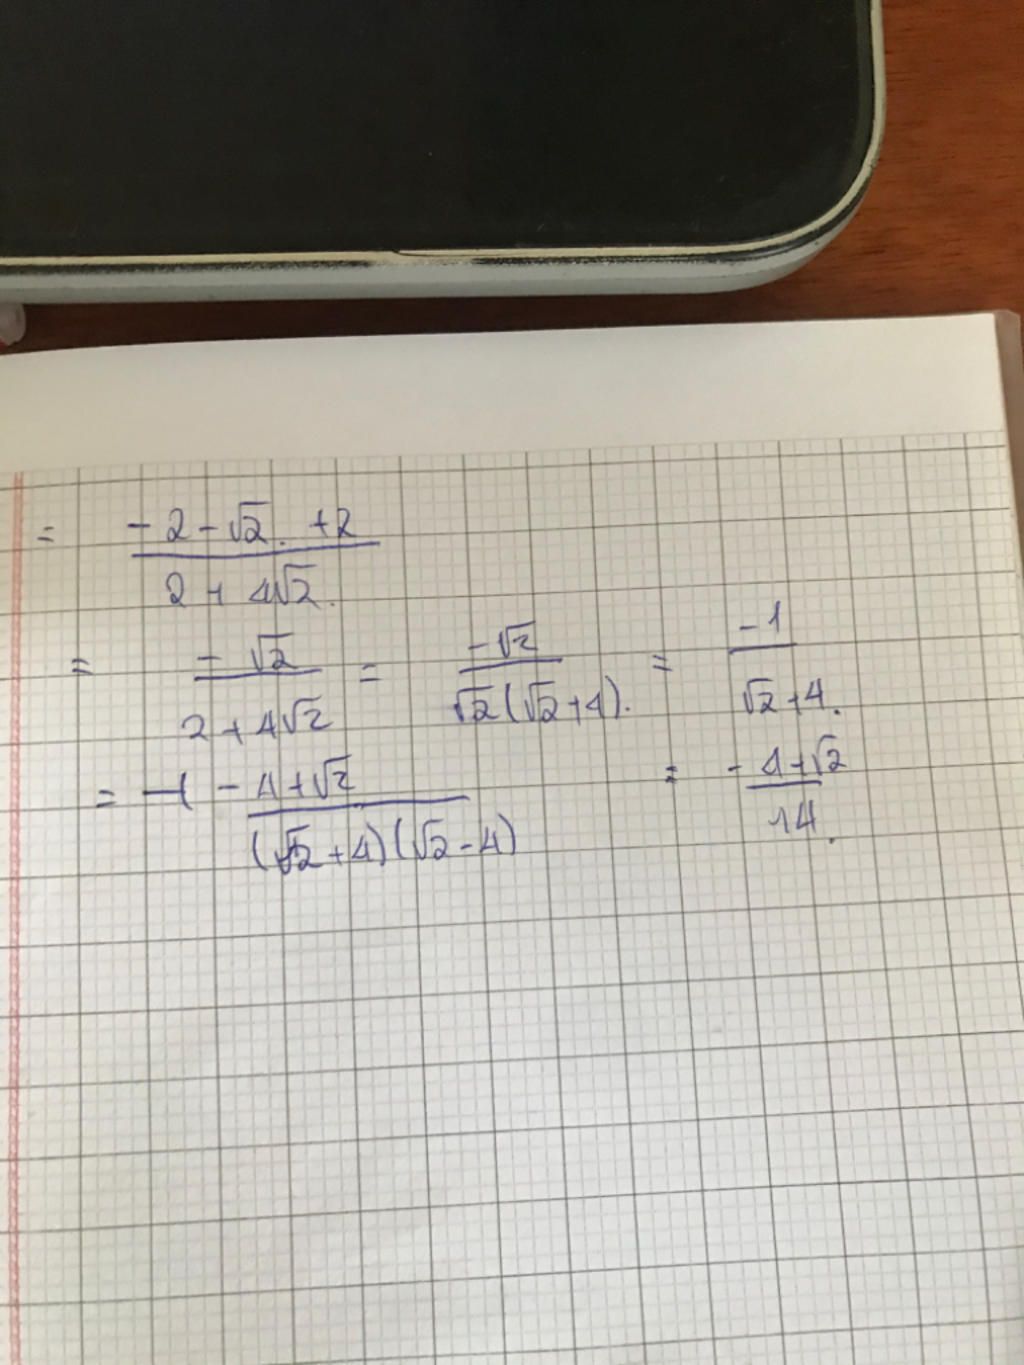 = (-2-√2. +2)/(2+4√2.)
= (-√2)/(2+4√2) = (-√2)/(√2(√2+4).) = (-1)/(√2+4.)
= (-4+√2)/((√2+4)(√2-4)) = (-4+√2)/(14.)